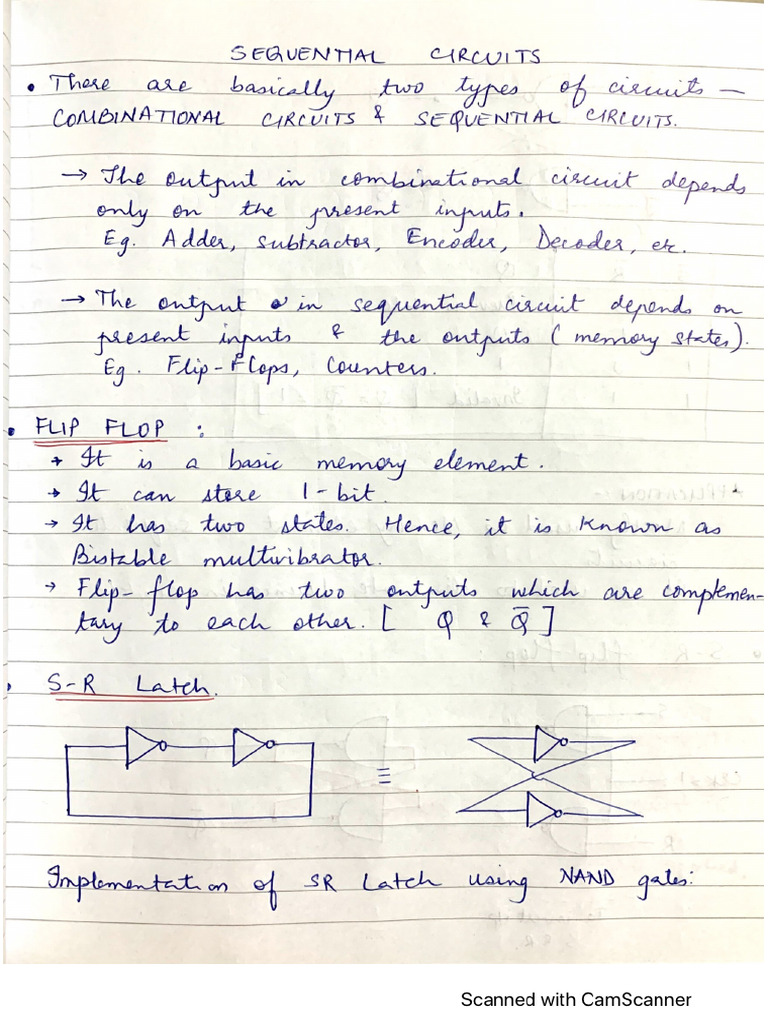 SEQUENTIAL CIRCUITS
• There are basically two types of circuits —
COMBINATIONAL CIRCUITS & SEQUENTIAL CIRCUITS.
→ The output in combinational circuit depends
only on the present inputs.
Eg. Adder, subtractor, Encoder, Decoder, etc.
→ The output in sequential circuit depends on
present inputs & the outputs (memory states).
Eg. Flip-Flops, Counters.
• FLIP FLOP :
→ It is a basic memory element.
→ It can store 1-bit.
→ It has two states. Hence, it is known as
Bistable multivibrator.
→ Flip-flop has two outputs which are complemen-
tary to each other. [ Q & Q̅ ]
• S-R Latch.
≡
Implementation of SR Latch using NAND gates:
Scanned with CamScanner